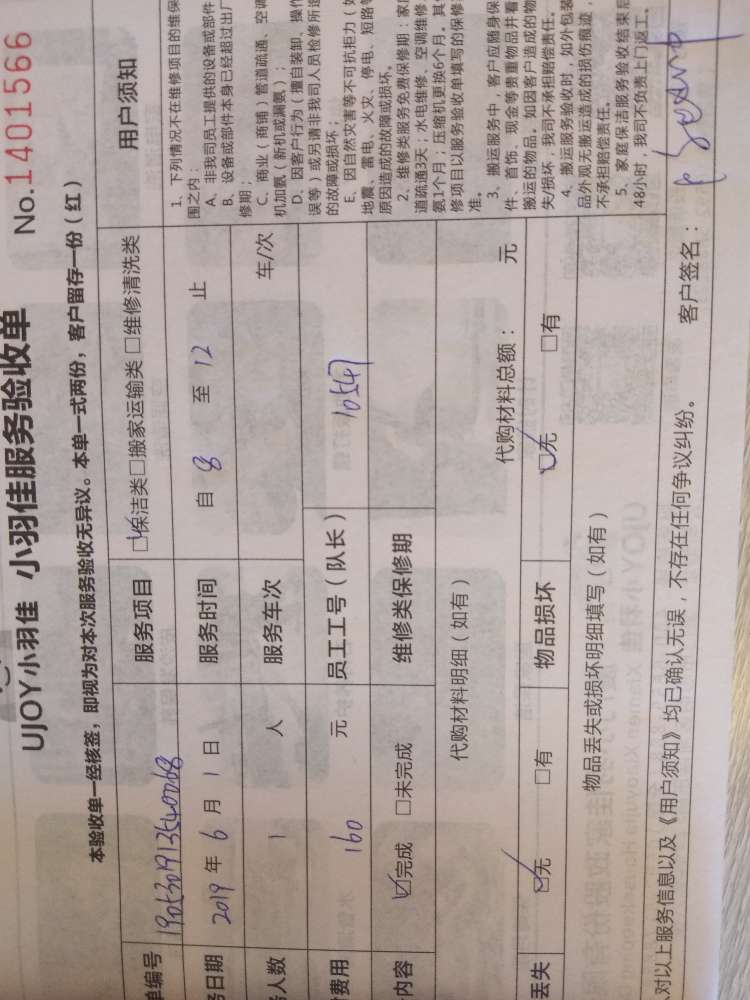 UJOY小羽佳 小羽佳服务验收单
No.1401566
本验收单一经核签，即视为对本次服务验收无异议。本单一式两份，客户留存一份（红）
单编号
服务项目 ☑保洁类□搬家运输类 □维修清洗类
务日期 2019 年 6 月 1 日 服务时间 自 8 至 12 止
务人数 1 人 服务车次 车/次
费用 160 元 员工工号（队长） 10547
内容 ☑完成 □未完成 维修类保修期
代购材料明细（如有） 代购材料总额： 元
丢失 ☑无 □有 物品损坏 ☑无 □有
物品丢失或损坏明细填写（如有）
用户须知
1、下列情况不在维修项目的维保
围之内：
A、非我司员工提供的设备或部件
B、设备或部件本身已经超过出厂
修期；
C、商业（商铺）管道疏通、空调
机加氨（新机或漏氨）；
D、因客户行为（擅自装卸、操作
误等）或另请非我司人员检修所造
的故障或损坏；
E、因自然灾害等不可抗拒力（如
地震、雷电、火灾、停电、短路等
原因造成的故障或损坏。
2、维修类服务免费保修期：家庭
道疏通3天；水电维修、空调维修
氨1个月；压缩机更换6个月。其它
修项目以服务验收单填写的保修期
准。
3、搬运服务中，客户应随身保
件、首饰、现金等贵重物品并看
搬运的物品。如因客户造成的物
失/损坏，我司不承担赔偿责任。
4、搬运服务验收时，如外包装
品外观无搬运造成的损伤痕迹，
不承担赔偿责任。
5、家庭保洁服务验收结束后
48小时，我司不负责上门返工。
对以上服务信息以及《用户须知》均已确认无误，不存在任何争议纠纷。 客户签名：